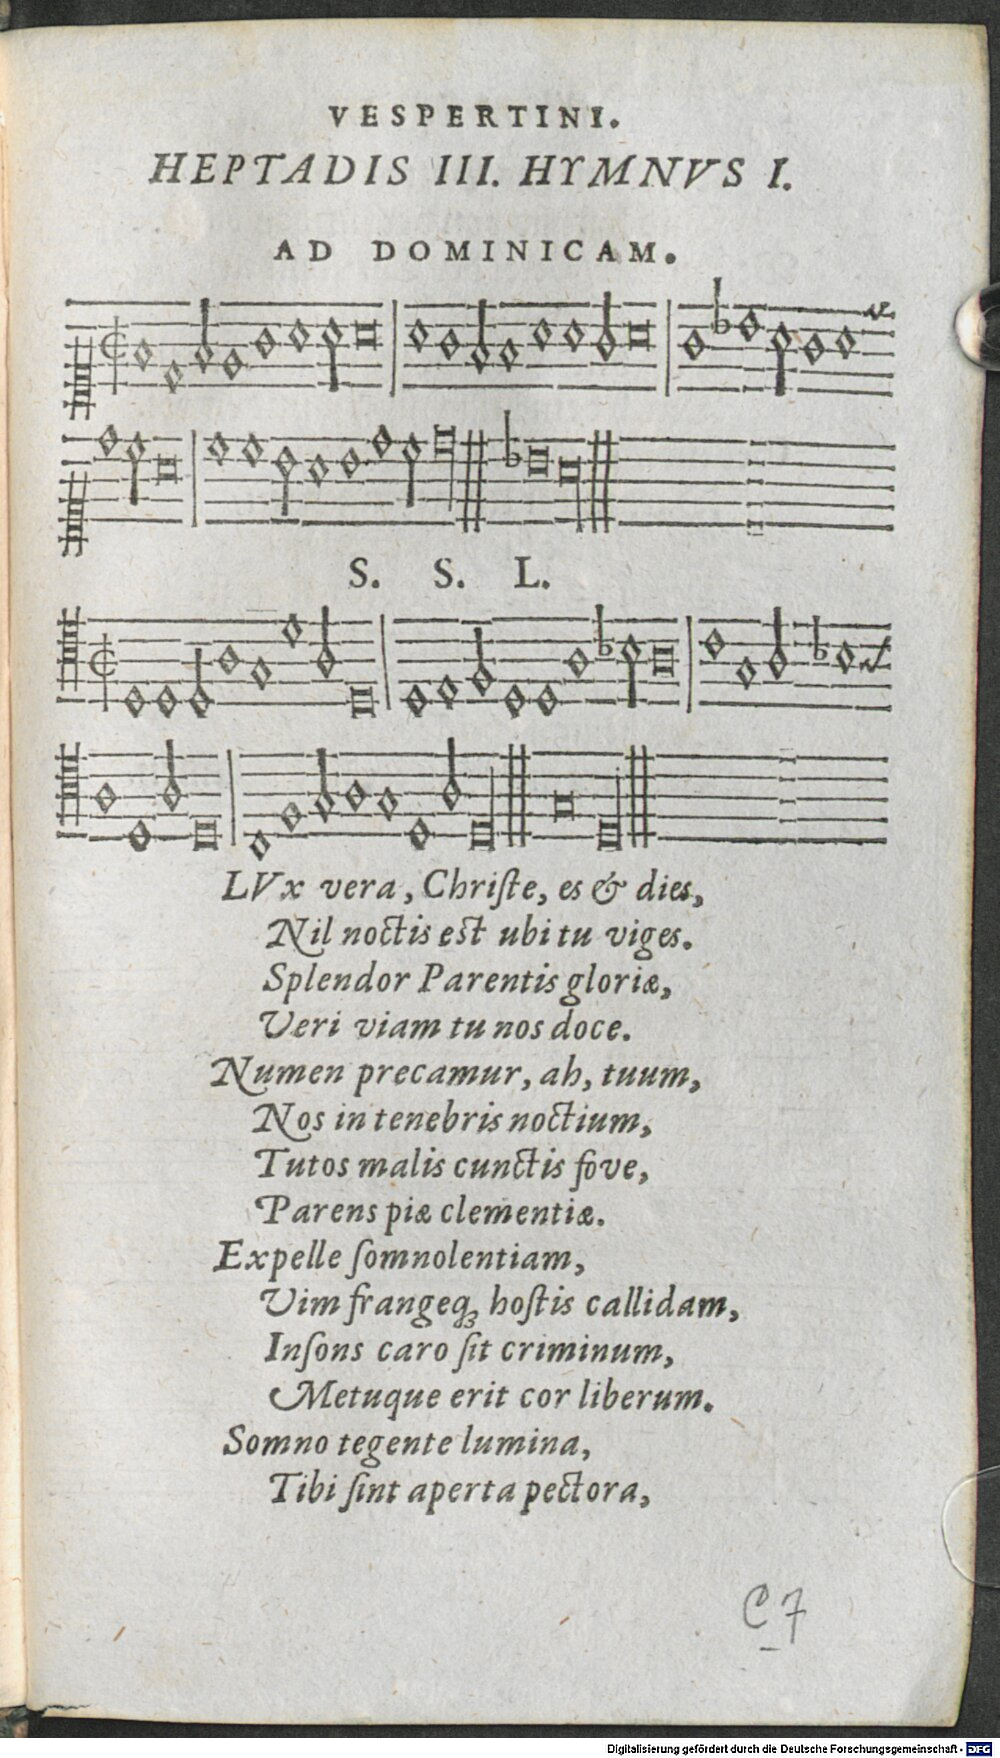 VESPERTINI.
HEPTADIS III. HYMNVS I.
AD DOMINICAM.
S. S. L.
LVx vera, Chriſte, es & dies,
Nil noctis est ubi tu viges.
Splendor Parentis gloriæ,
Veri viam tu nos doce.
Numen precamur, ah, tuum,
Nos in tenebris noctium,
Tutos malis cunctis fove,
Parens piæ clementiæ.
Expelle ſomnolentiam,
Vim frangeq́; hoſtis callidam,
Inſons caro ſit criminum,
Metuque erit cor liberum.
Somno tegente lumina,
Tibi ſint aperta pectora,
C 7
Digitalisierung gefördert durch die Deutsche Forschungsgemeinschaft - DFG